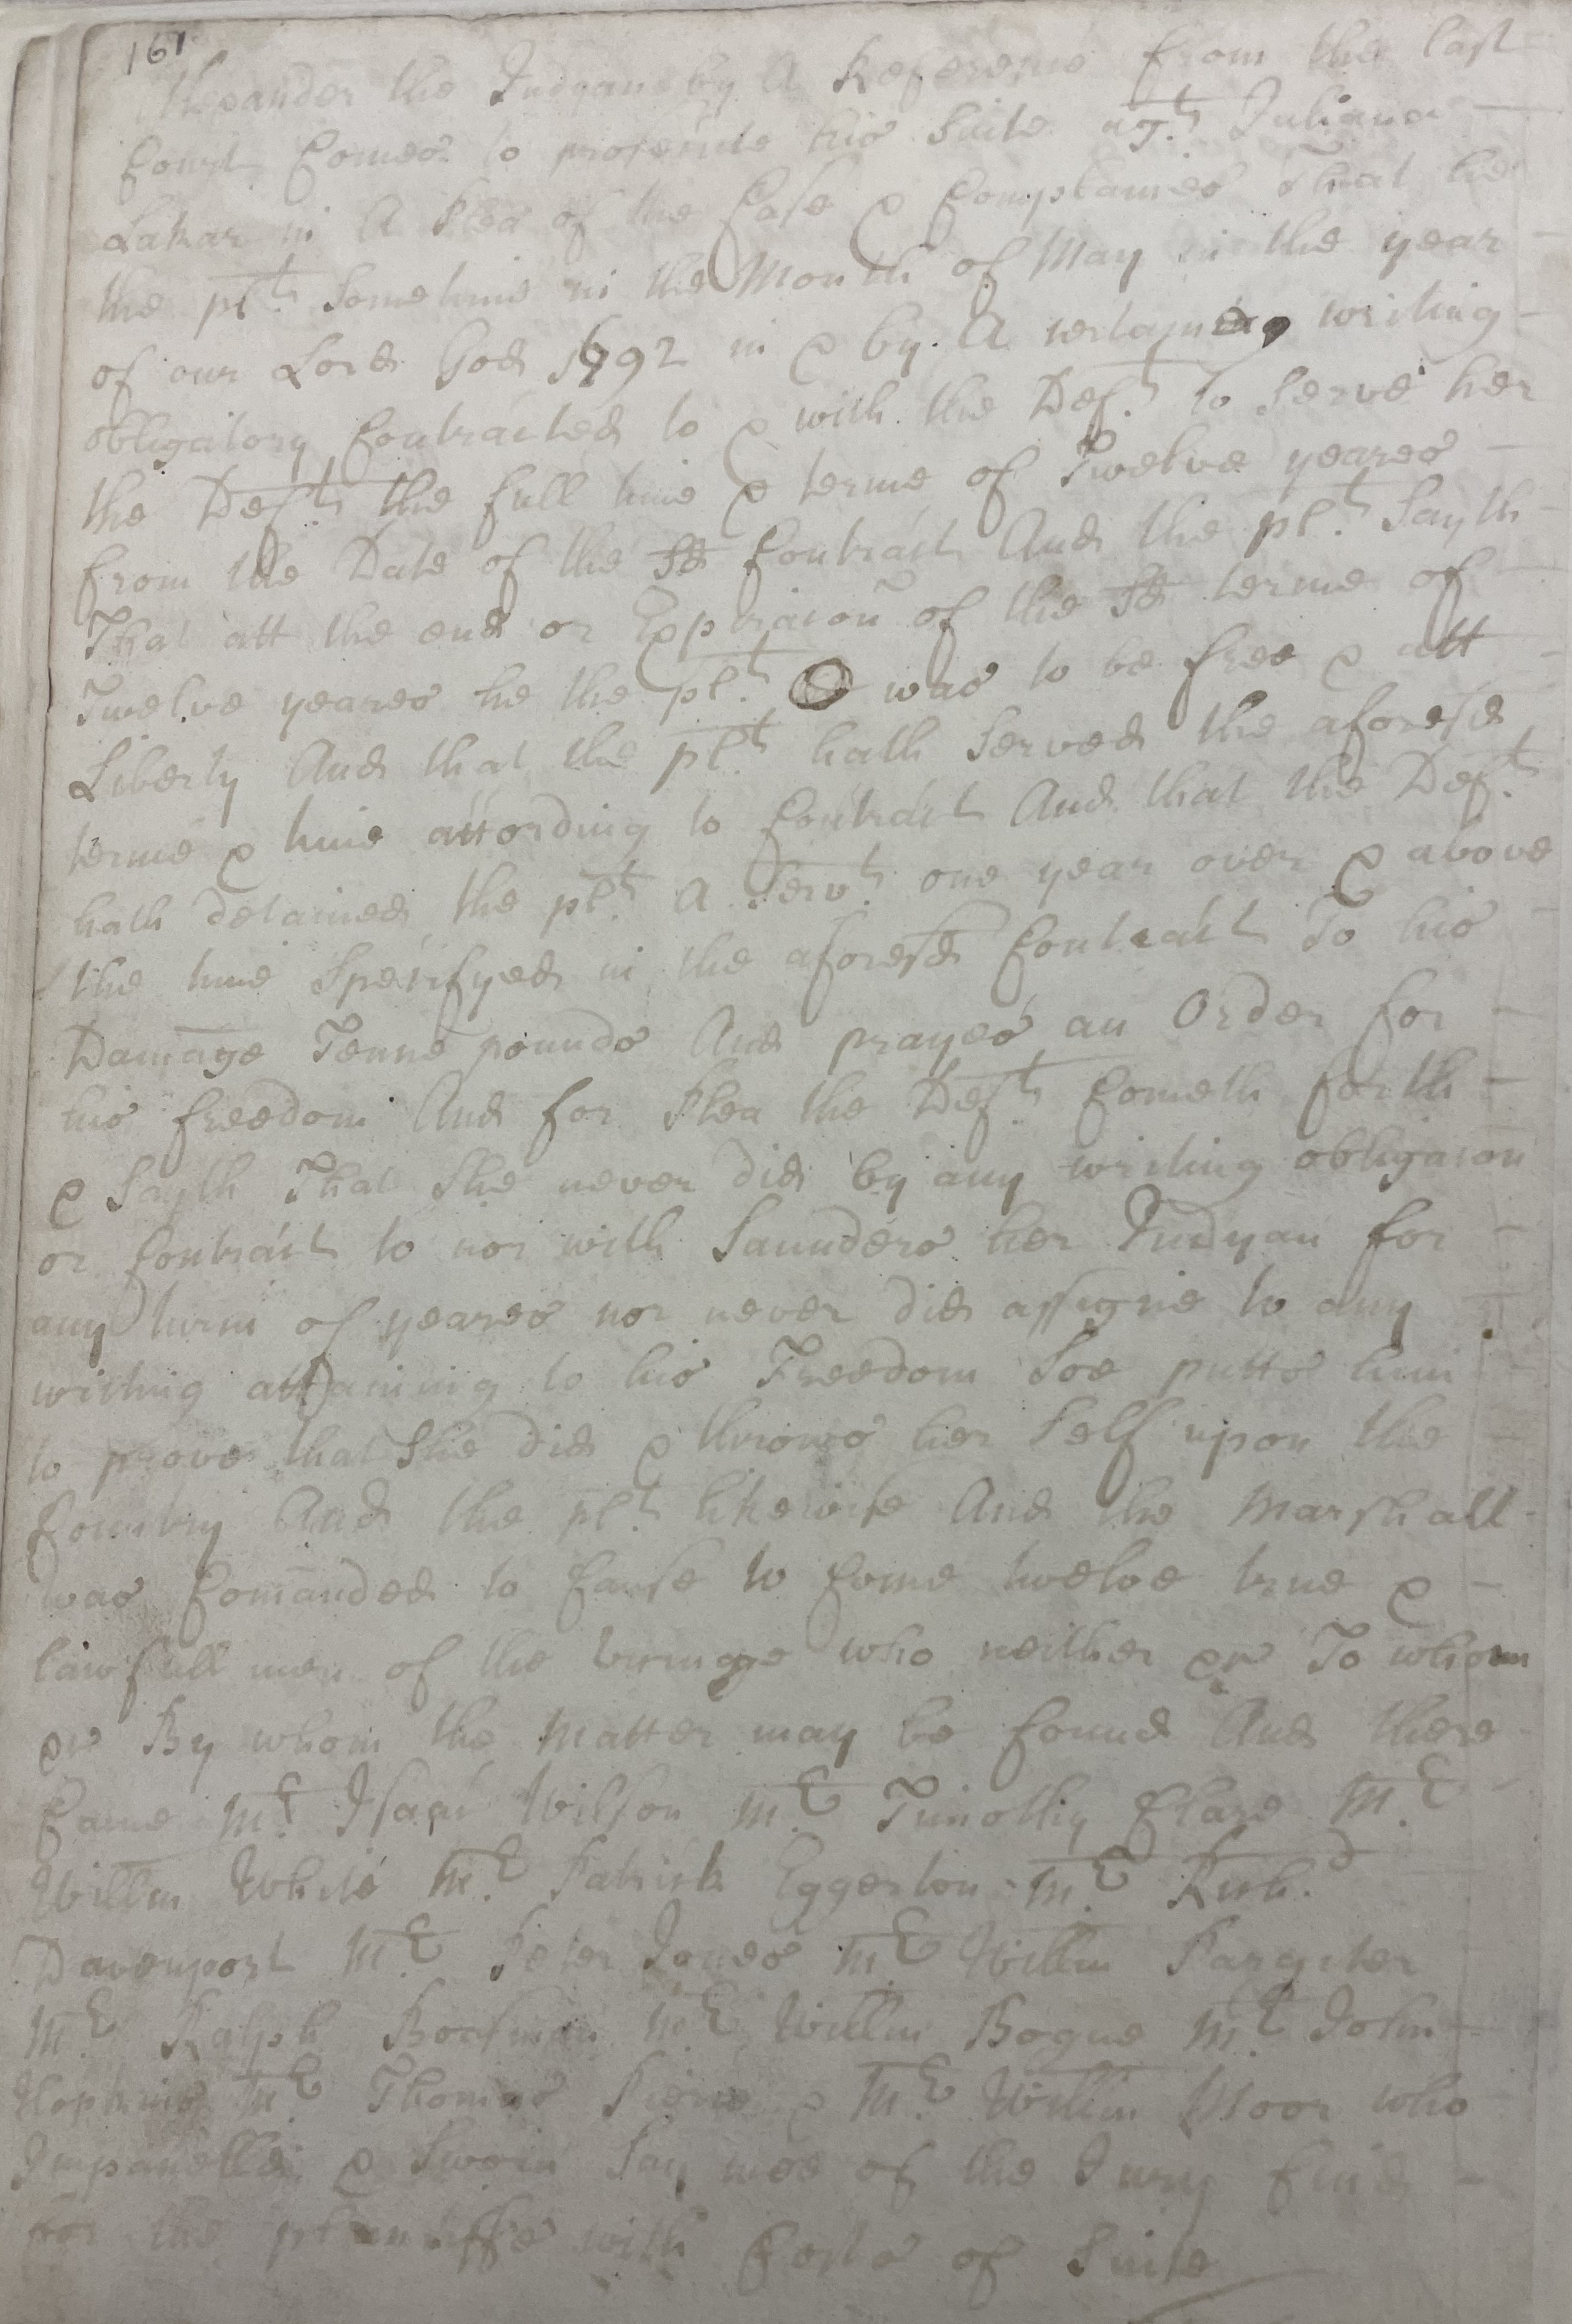 161
Alexander the Indyan by A Reference from the last
Court Comes to prosecute his Suite agt. Juliana
Lakar in A Plea of the Case & Complaines That he
the plt. Sometime in the Month of May in the year
of our Lord God 1692 in & by A certayne writing
obligatory Contracted to & with the Deft. to Serve her
the Deft. the full time & terme of Twelve yeares
from the Date of the sd Contract And the plt. Sayth
That att the end or Expiracon of the sd terme of
Twelve yeares he the plt. was to be free & att
Liberty And that the plt. hath Served the aforesd
terme & time according to Contract And that the Deft.
hath detained the plt. A Servt. one year over & above
the time Specifyed in the aforesd Contract To his
Damage Tenne pounds And prayes an Order for
his freedom And for Plea the Deft. Cometh forth
& Sayth That She never did by any writing obligacon
or Contract to nor with Saunders her Indyan for
any turm of yeares nor never did assigne to any
writing attaining to his Freedom Soe putts him
to prove that She did & throws her Self upon the
Country And the plt. likewise And the Marshall
was Comanded to Cause to Come twelve true &
lawfull men of the vicinage who neither &c To whom
&c By whom the Matter may be found And there
Came Mr. Isaac Wilson Mr. Timothy Clare Mr.
Willm White Mr. Patrick Eggerton Mr. Richd.
Davenport Mr. Peter Jones Mr. Willm Pargiter
Mr. Ralph Bocsman Mr. Willm Bogue Mr. John
Hopkins Mr. Thomas Pierce & Mr. Willm Moor who
Impanelled & Sworn Say wee of the Jury find
for the plantiffe with Costs of Suite